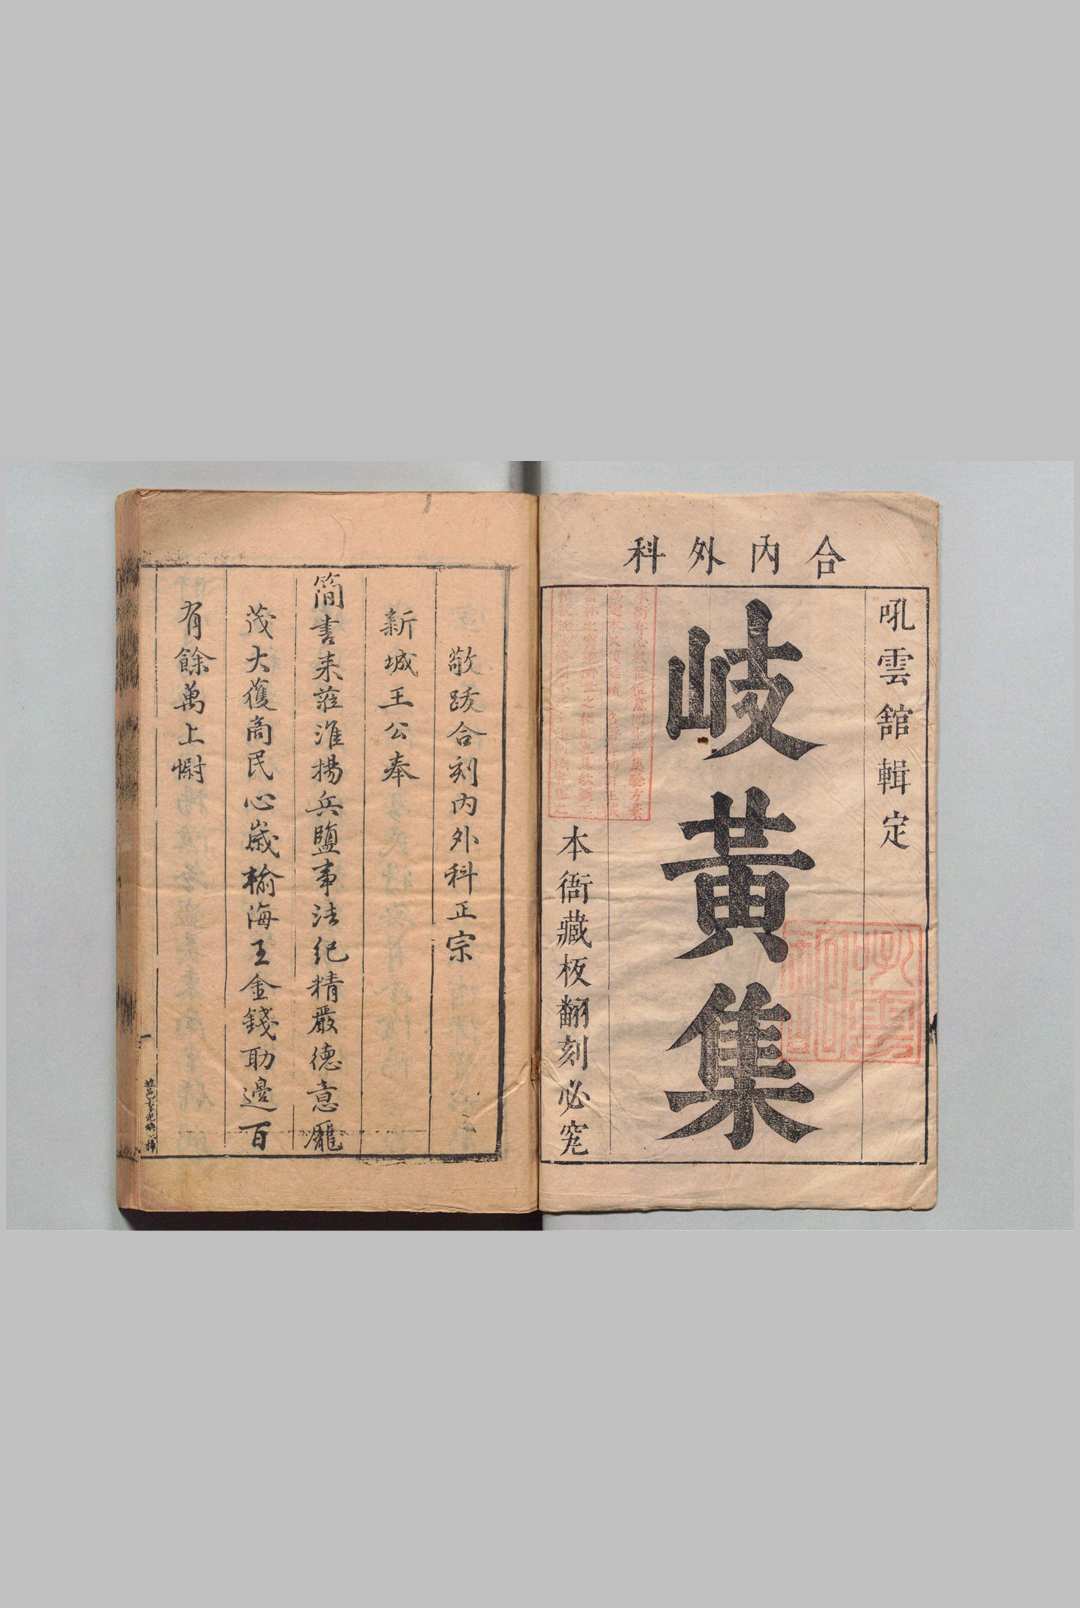 合內外科
吼雲舘輯定
岐黃集
本衙藏板翻刻必究
敬跋合刻內外科正宗
新城王公奉
簡書来蒞淮揚兵鹽事法紀精嚴德意龎
茂大獲商民心歲輸海王金錢助邊百
有餘萬上慰